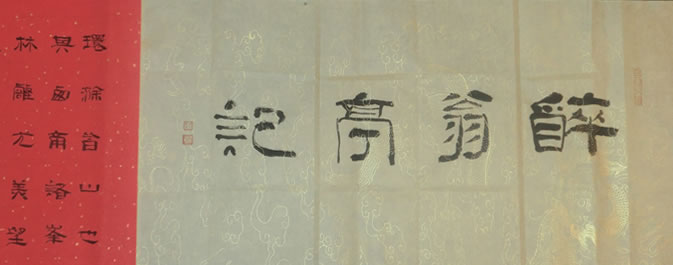 醉翁亭記
環滁皆山也
其西南諸峯
林壑尤美望